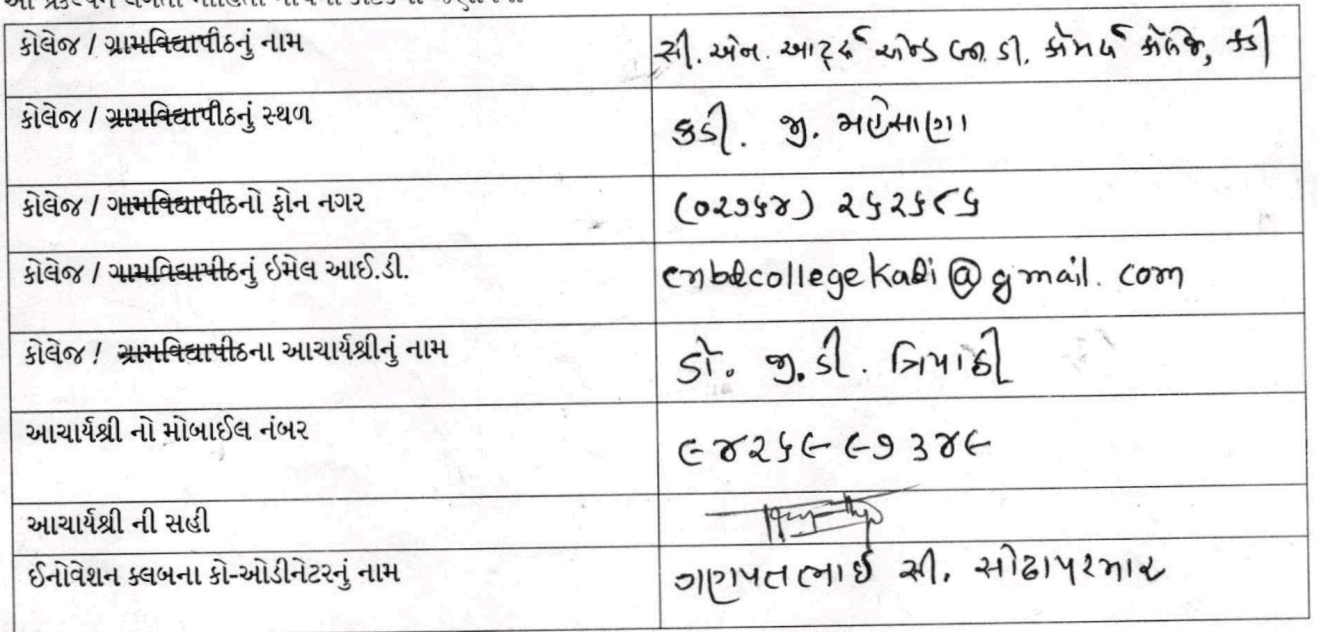 કોલેજ / ગ્રામવિદ્યાપીઠનું નામ સી. એન. આર્ટ્સ એન્ડ બી. ડી. કોમર્સ કોલેજ, કડી
કોલેજ / ગ્રામવિદ્યાપીઠનું સ્થળ કડી. જી. મહેસાણા
કોલેજ / ગામવિદ્યાપીઠનો ફોન નગર (૦૨૭૬૪) ૨૬૨૬૮૬
કોલેજ / ગામવિદ્યાપીઠનું ઇમેલ આઈ.ડી. cnbdcollegekadi@gmail.com
કોલેજ ! ગ્રામવિદ્યાપીઠના આચાર્યશ્રીનું નામ ડો. જી. ડી. ત્રિપાઠી
આચાર્યશ્રી નો મોબાઈલ નંબર ૯૪૨૬૯૯૭૩૪૯
આચાર્યશ્રી ની સહી
ઈનોવેશન ક્લબના કો-ઓડીનેટરનું નામ ગણપતભાઈ સી. સોઢાપરમાર